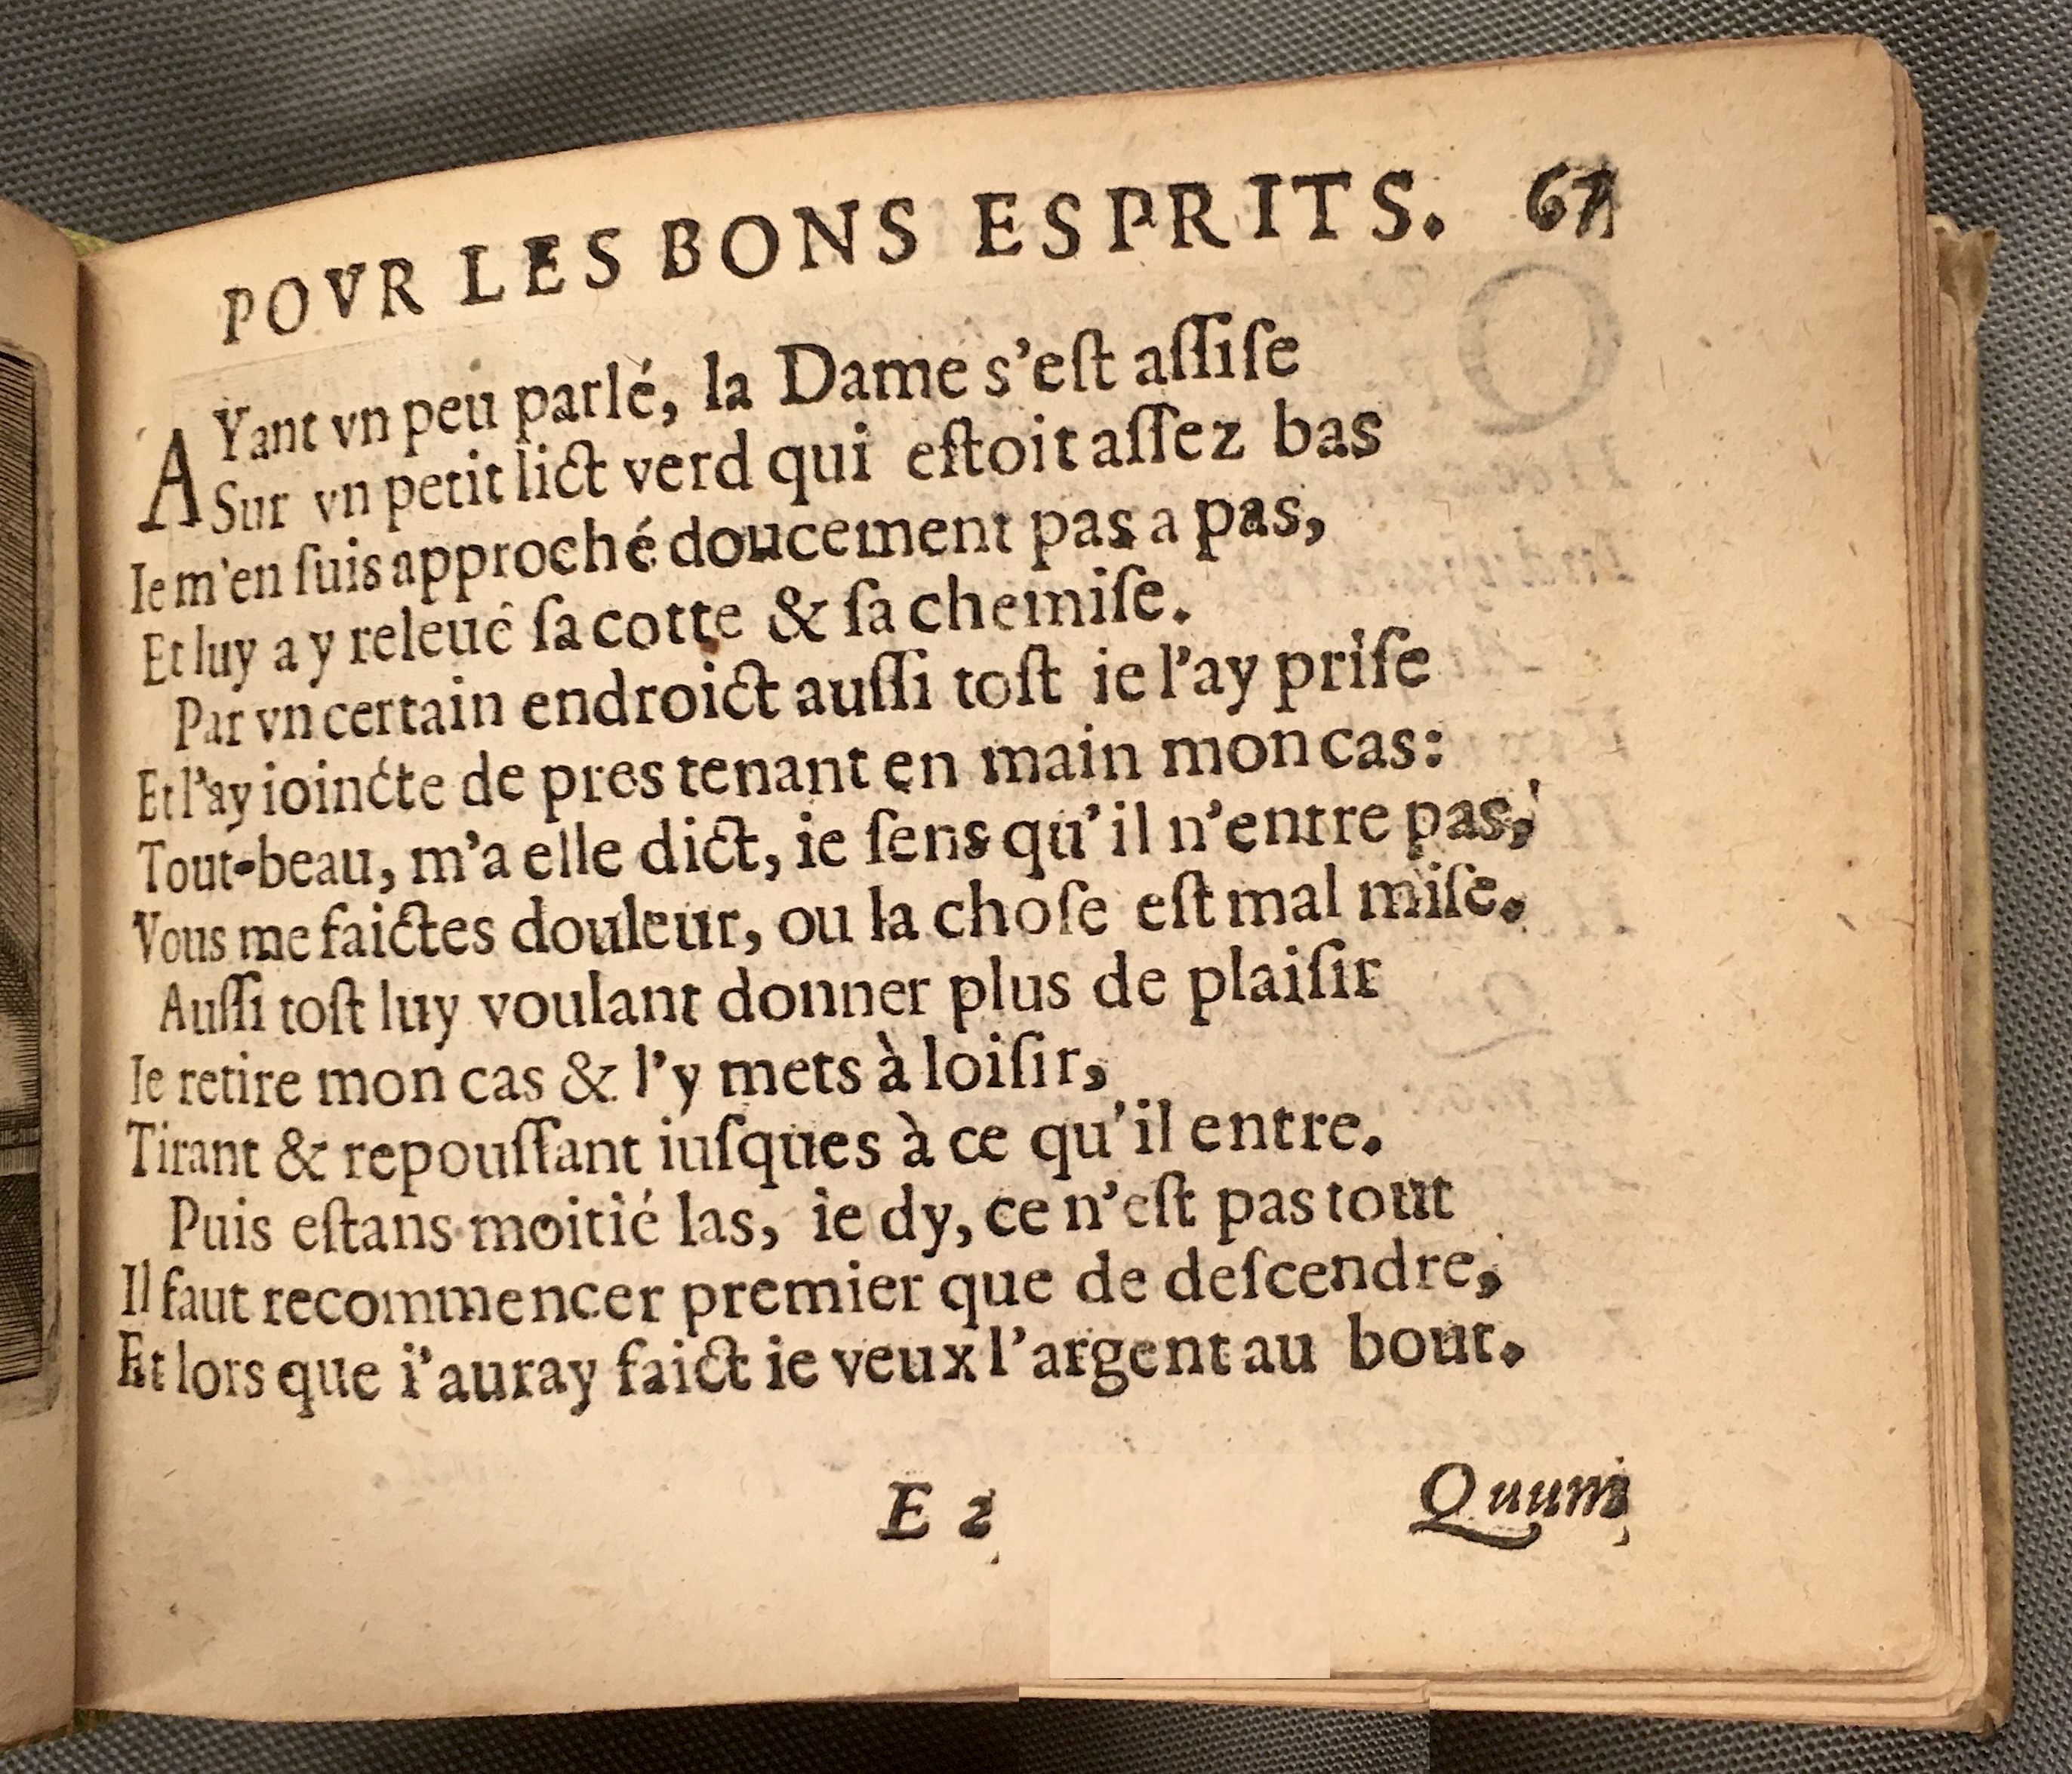 POVR LES BONS ESPRITS. 67
AYant vn peu parlé, la Dame s'eſt aſſiſe
Sur vn petit lict verd qui eſtoit aſſez bas
Ie m'en ſuis approché doucement pas a pas,
Et luy a y releué ſa cotte & ſa chemiſe.
Par vn certain endroict auſſi toſt ie l'ay priſe
Et l'ay ioincte de pres tenant en main mon cas:
Tout-beau, m'a elle dict, ie ſens qu'il n'entre pas,
Vous me faictes douleur, ou la choſe eſt mal miſe.
Auſſi toſt luy voulant donner plus de plaiſir
Ie retire mon cas & l'y mets à loiſir,
Tirant & repouſſant iuſques à ce qu'il entre.
Puis eſtans moitié las, ie dy, ce n'eſt pas tout
Il faut recommencer premier que de deſcendre,
Et lors que i'auray faict ie veux l'argent au bout.
E 2 Quum